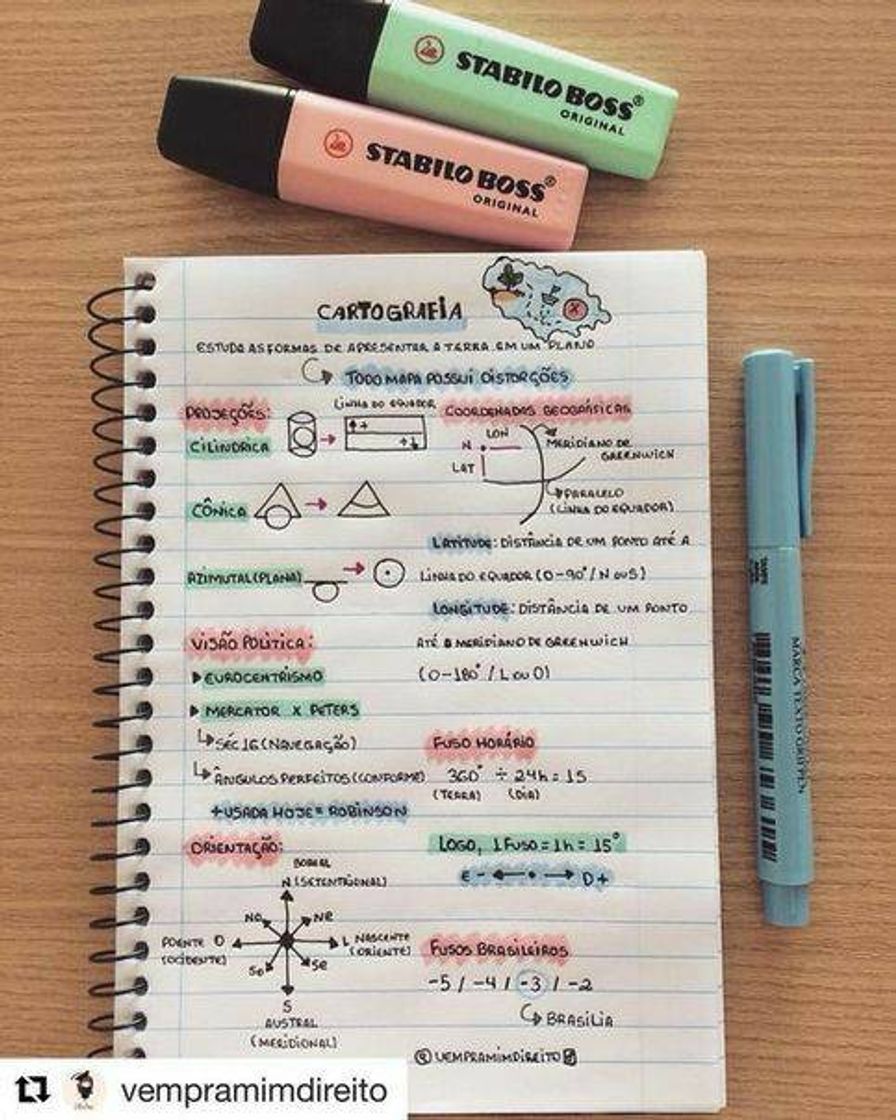 STABILO BOSS®
ORIGINAL
STABILO BOSS®
ORIGINAL
CARTOGRAFIA
ESTUDA AS FORMAS DE APRESENTAR A TERRA EM UM PLANO
TODO MAPA POSSUI DISTORÇÕES
PROJEÇÕES:
CILÍNDRICA
LINHA DO EQUADOR
CÔNICA
AZIMUTAL (PLANA)
VISÃO POLÍTICA:
EUROCENTRISMO
MERCATOR X PETERS
SÉC 16 (NAVEGAÇÃO)
ÂNGULOS PERFEITOS (CONFORME)
+ USADA HOJE = ROBINSON
ORIENTAÇÃO:
BOREAL
N (SETENTRIONAL)
NO
NE
POENTE O
(OCIDENTE)
L NASCENTE
(ORIENTE)
SO
SE
S
AUSTRAL
(MERIDIONAL)
COORDENADAS GEOGRÁFICAS
LON
N
LAT
MERIDIANO DE
GREENWICH
PARALELO
(LINHA DO EQUADOR)
LATITUDE: DISTÂNCIA DE UM PONTO ATÉ A
LINHA DO EQUADOR (0-90° / N OU S)
LONGITUDE: DISTÂNCIA DE UM PONTO
ATÉ O MERIDIANO DE GREENWICH
(0-180° / L OU O)
FUSO HORÁRIO
360° ÷ 24h = 15
(TERRA) (DIA)
LOGO, 1 FUSO = 1h = 15°
E - D +
FUSOS BRASILEIROS
-5 / -4 / -3 / -2
BRASÍLIA
@VEMPRAMIMDIREITO
MARCA TEXTO GRIFPEN
vempramimdireito